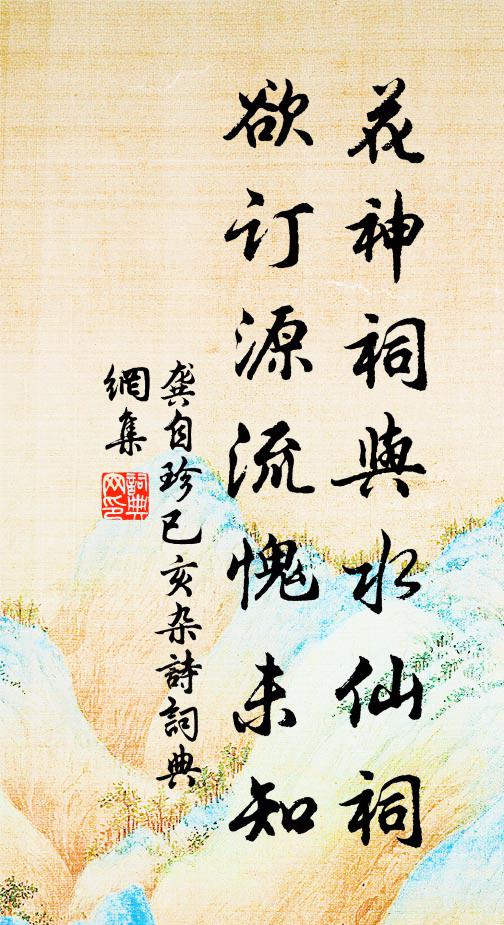 花神祠與水仙祠
欲订源流愧未知
龚自珍己亥杂詩詞典
網集
詞典网印